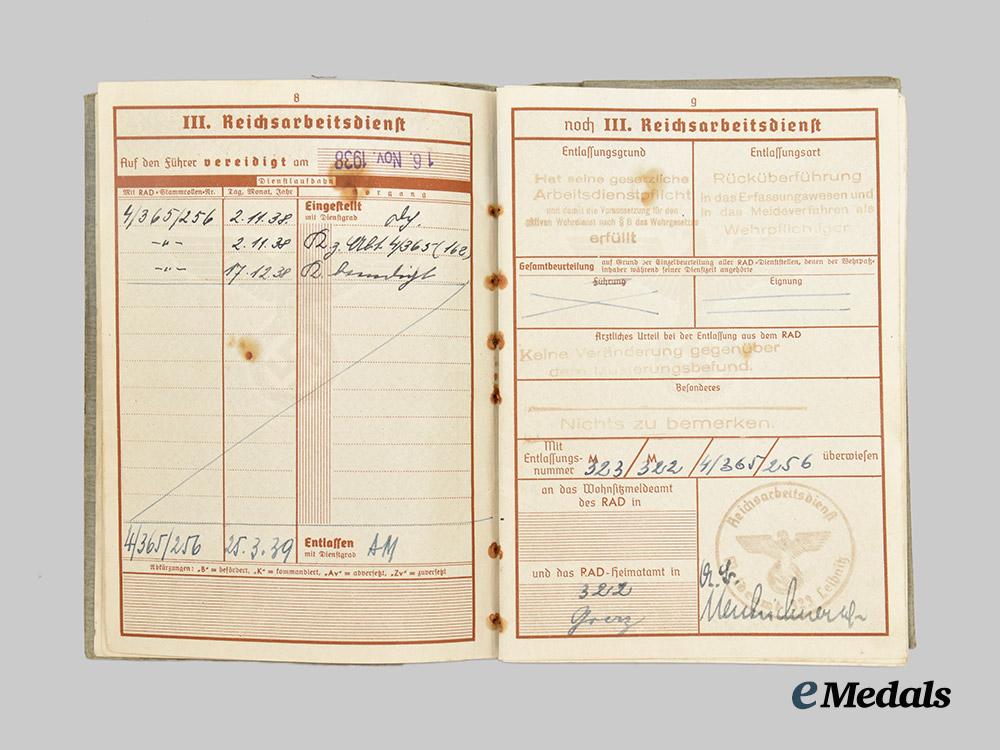 8
III. Reichsarbeitsdienst
Auf den Führer vereidigt am 16. Nov. 1938
Dienstlaufbahn
Mit RAD-Stammrollen-Nr. Tag, Monat, Jahr Vorgang
Eingestellt
mit Dienstgrad
4/365/256 2.11.38.
-"- 2.11.38 z. Abt. 4/365 (162)
-"- 17.12.38
4/365/256 25.3.39 Entlassen AM
mit Dienstgrad
Abkürzungen: „B" = befördert, „K" = kommandiert, „Av" = abversetzt, „Zv" = zuversetzt
9
noch III. Reichsarbeitsdienst
Entlassungsgrund
Hat seine gesetzliche
Arbeitsdienstpflicht
und damit die Voraussetzung für den
aktiven Wehrdienst nach § 8 des Wehrgesetzes
erfüllt
Entlassungsart
Rücküberführung
in das Erfassungswesen und
in das Meldeverfahren als
Wehrpflichtiger
Gesamtbeurteilung auf Grund der Einzelbeurteilung aller RAD-Dienststellen, denen der Wehrpaß-
inhaber während seiner Dienstzeit angehörte
Führung
Eignung
Ärztliches Urteil bei der Entlassung aus dem RAD
Keine Veränderung gegenüber
dem Musterungsbefund.
Besonderes
Nichts zu bemerken.
Mit
Entlassungs-
nummer M 323 / M 322 / 4/365/256 überwiesen
an das Wohnsitzmeldeamt
des RAD in
und das RAD-Heimatamt in
322
Graz
Reichsarbeitsdienst
Leibnitz
eMedals